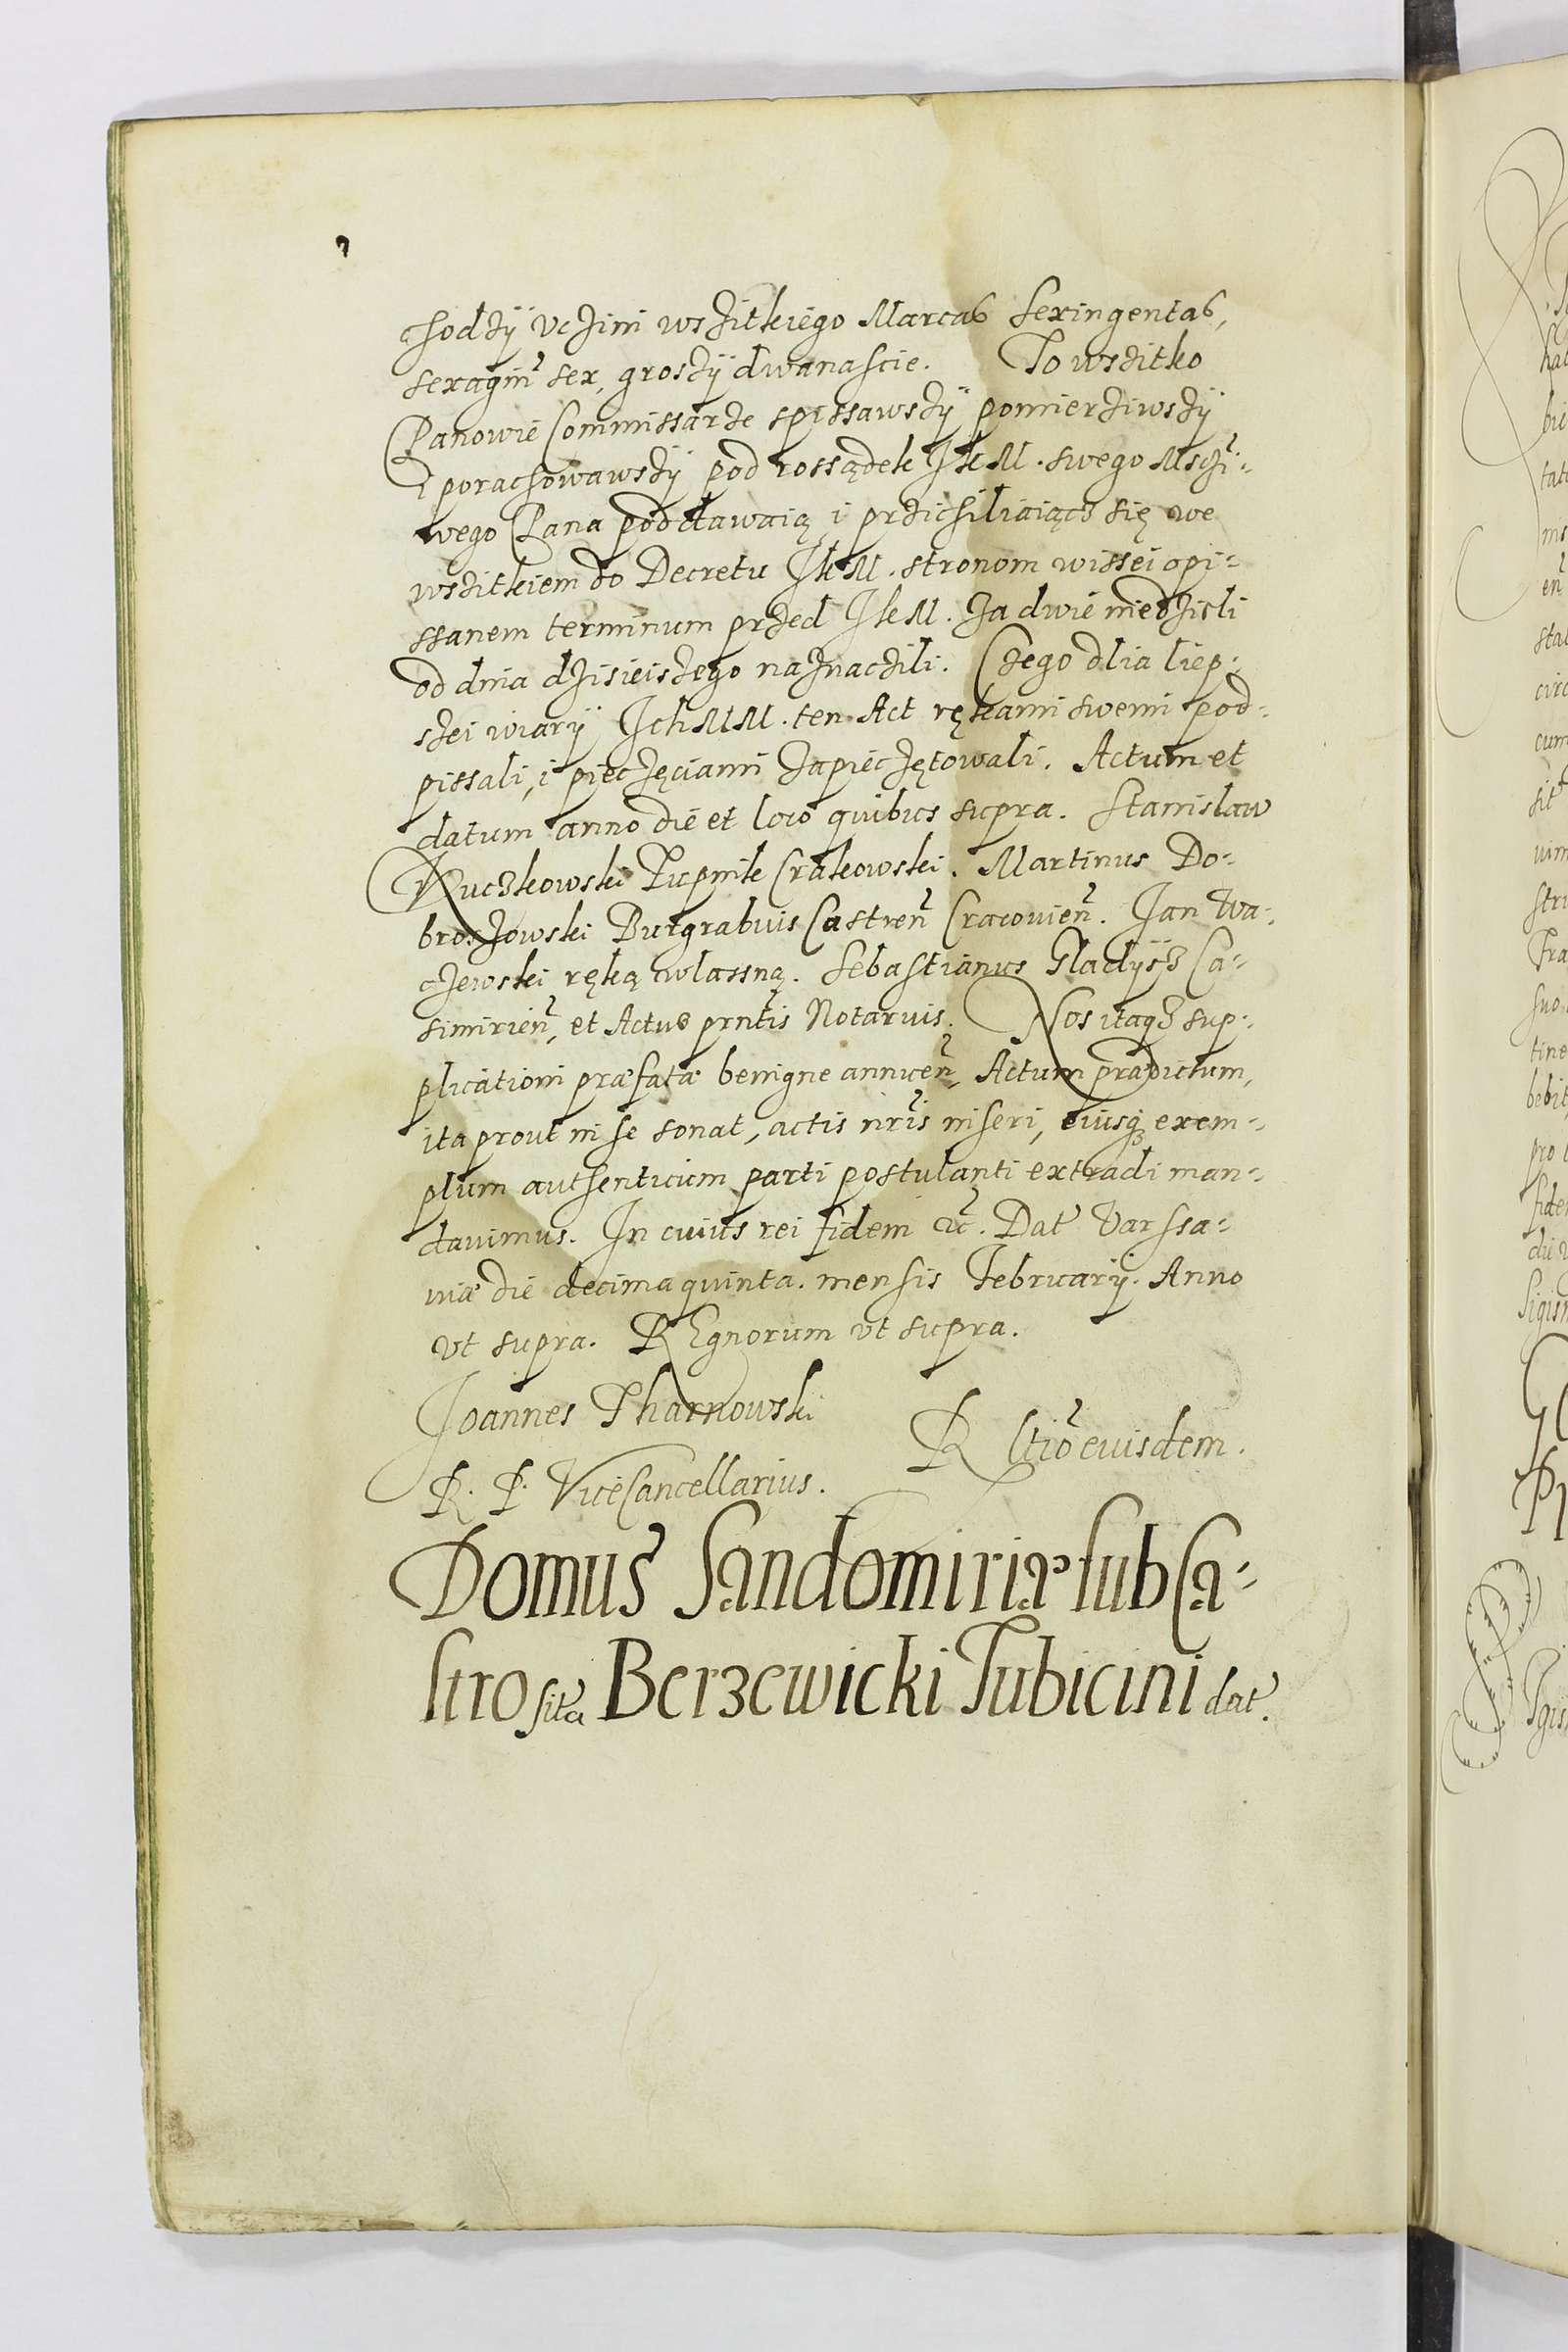 chodzÿ vczini wszitkiego Marcas sexingentas,
sexagin̄ sex, groszÿ dwanascie. To wszitko
Panowie Commissarze spissawszÿ pomierziwszÿ
i porachowawszÿ pod rossądek JkM. swego Msczi-
wego Pana poddawaią, i przichiliaiącz się we
wszitkiem do Decretu JkM. stronom wissei opi-
ssanem terminum przed JkM. za dwie niedzieli
od dnia dzisieiszego naznaczili. Czego dlia liep-
szei wiarÿ IchMM. ten Act rękami swemi pod-
pissali, i pieczęciami zapieczętowali. Actum et
datum anno die et loco quibus supra. Stanislaw
Ruczkowski Łupnik Crakowski. Martinus Do-
broszowski Burgrabius Castren̄ Cracovien̄. Jan Wa-
czewski ręką wlassną. Sebastianus Gladÿsz Ca-
simirien̄, et Actus prn̄tis Notarius. Nos itaqȝ sup-
plicationi præfatæ benigne annuen̄, Actum prædictum,
ita prout in se sonat, actis nr̄is inseri, eiusqȝ exem-
plum authenticum parti postulanti extradi man-
davimus. In cuius rei fidem etc̄. Dat Varssa-
viæ die decima quinta. mensis Februarij. Anno
vt supra. REgnorum vt supra.
Joannes Tharnowski
R. P. ViceCancellarius.
R ltio eiusdem.
Domus Sandomiriæ sub Ca-
stro sita Berzewicki Tubicini dat.